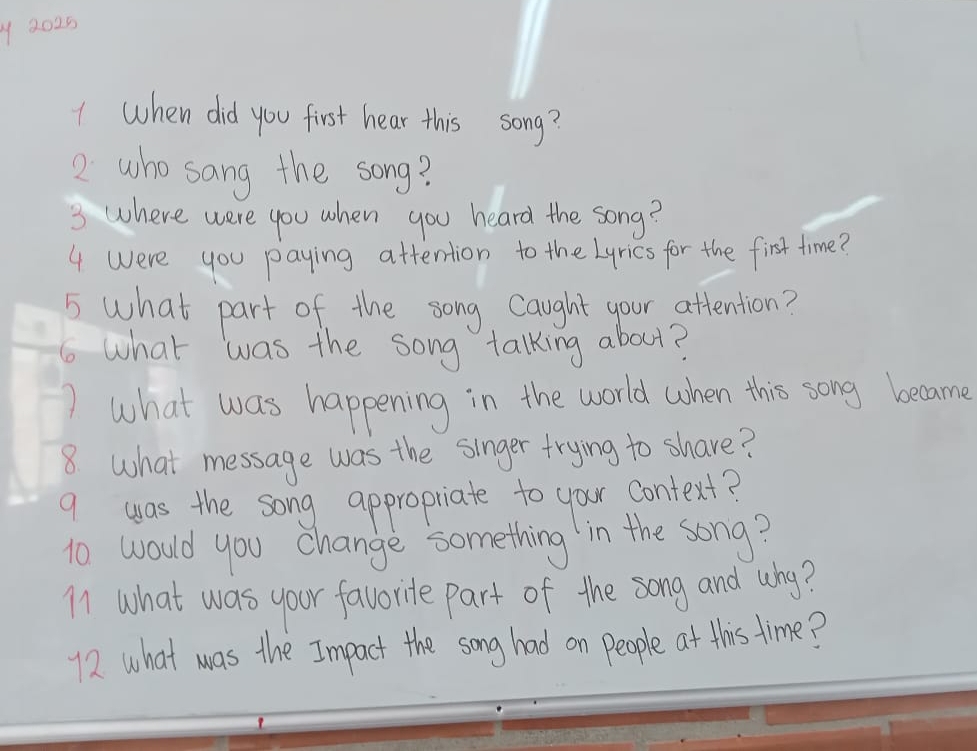 y 2025
1 When did you first hear this song?
2 who sang the song?
3 where were you when you heard the song?
4 were you paying attention to the Lyrics for the first time?
5 what part of the song Caught your attention?
6 what was the song talking about?
7 what was happening in the world when this song became
8. what message was the singer trying to share?
9 was the song appropriate to your Context?
10. would you change something in the song?
11 what was your favorite part of the song and why?
12 what was the Impact the song had on people at this time?